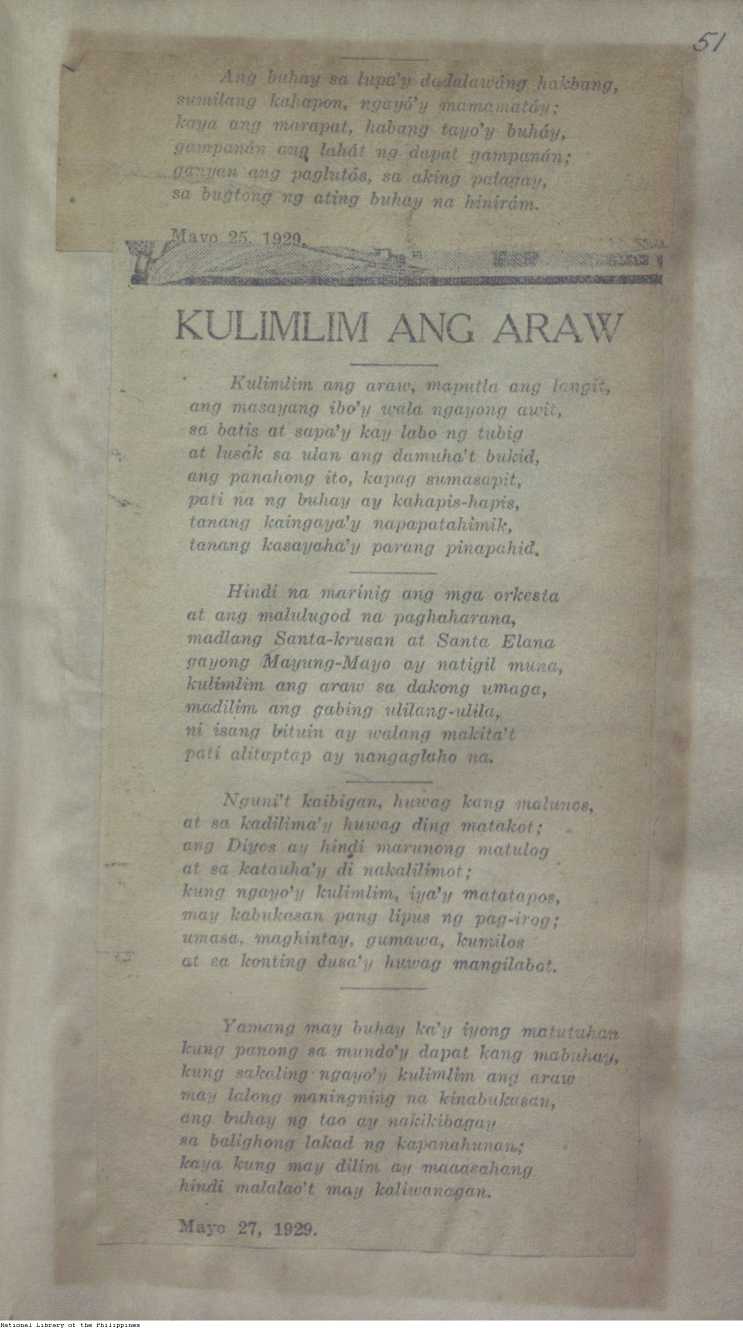 51
Ang buhay sa lupa'y dadalawáng hakbang,
sumilang kahapon, ngayó'y mamamatáy;
kaya ang marapat, habang tayo'y buháy,
gampanán ang lahát ng dapat gampanán;
ganyan ang paglutás, sa aking palagay,
sa bugtóng ng ating buhay na hinirám.
Mayo 25, 1929.
KULIMLIM ANG ARAW
Kulimlim ang araw, maputla ang langit,
ang masayang ibo'y wala ngayong awit,
sa batis at sapa'y kay labo ng tubig
at lusák sa ulan ang damuha't bukid,
ang panahong ito, kapag sumasapit,
pati na ng buhay ay kahapis-hapis,
tanang kaingaya'y napapatahimik,
tanang kasayaha'y parang pinapahid.
Hindi na marinig ang mga orkesta
at ang malulugod na paghaharana,
madlang Santa-krusan at Santa Elana
gayong Mayung-Mayo ay natigil muna,
kulimlim ang araw sa dakong umaga,
madilim ang gabing ulilang-ulila,
ni isang bituin ay walang makita't
pati alitaptap ay nangaglaho na.
Nguni't kaibigan, huwag kang malunos,
at sa kadilima'y huwag ding matakot;
ang Diyos ay hindi marunong matulog
at sa katauha'y di nakalilimot;
kung ngayo'y kulimlim, iya'y matatapos,
may kabukasan pang lipus ng pag-irog;
umasa, maghintay, gumawa, kumilos
at sa konting dusa'y huwag mangilabot.
Yamang may buhay ka'y iyong matutuhan
kung panong sa mundo'y dapat kang mabuhay,
kung sakaling ngayo'y kulimlim ang araw
may lalong maningning na kinabukasan,
ang buhay ng tao ay nakikibagay
sa balighong lakad ng kapanahunan;
kaya kung may dilim ay maaasahang
hindi malalao't may kaliwanagan.
Mayo 27, 1929.
National Library of the Philippines